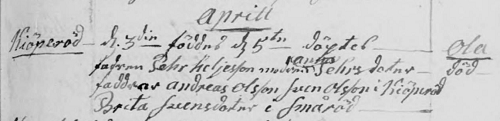 Aprill
Kiöperöd - d. 3din föddes d 5te döptes Ola
fadren Pehr Keljesson modren Pehrs doter död
faddrar andreas Olsson Sven Olsson i Kiöperöd
Brita Svensdoter i Småröd